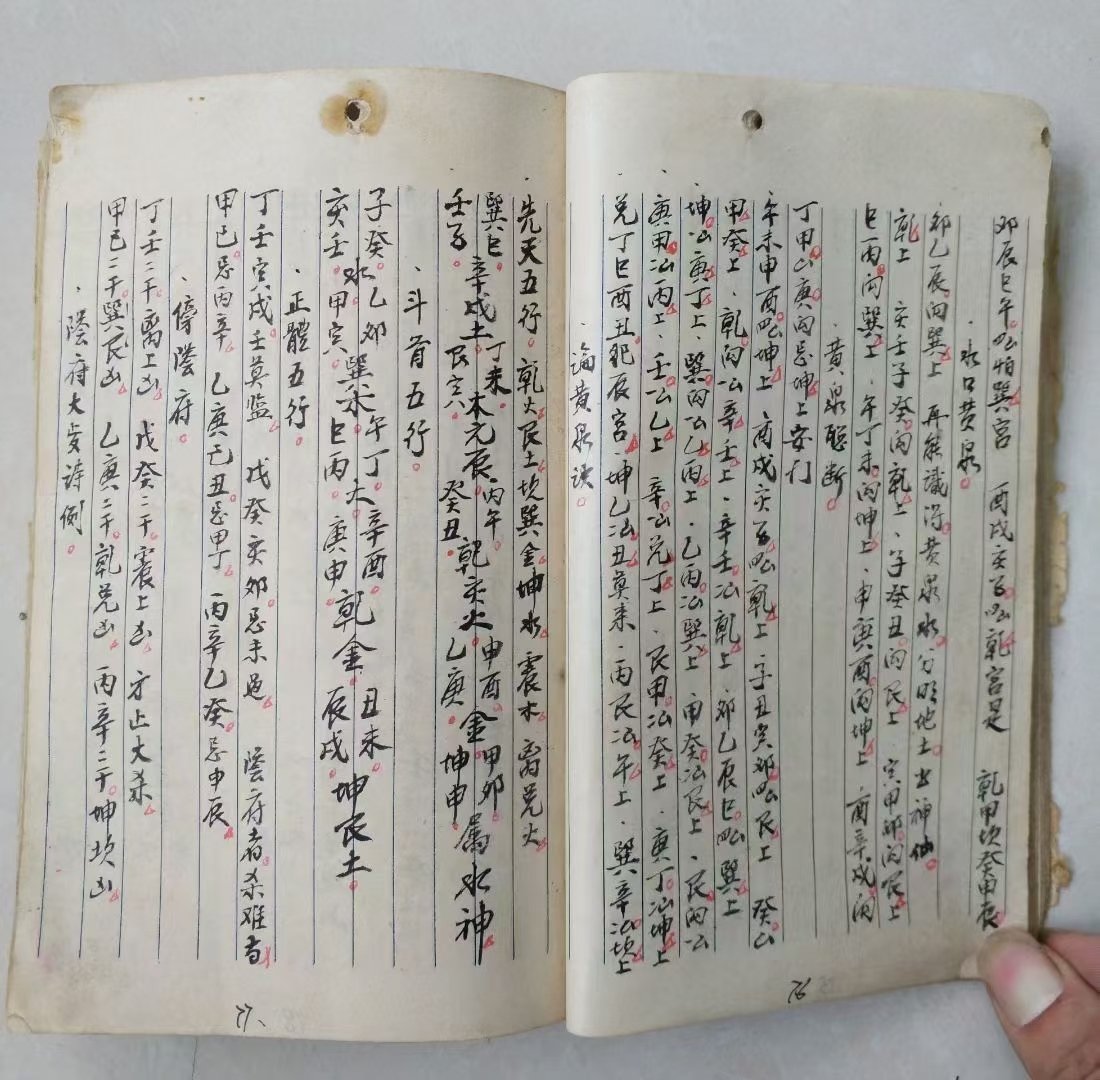 卯辰巳午㞧怕巽宫 酉戌亥子㞧乾宫是 乾甲坎癸申辰
水口黄泉
卯乙辰向巽上 再能識得黄泉水 分明地上出神仙
乾上 亥壬子癸向乾上 子癸丑向艮上 寅甲卯向艮上
巳丙向巽上 午丁未向坤上 申庚酉向坤上 酉辛戌向
黄泉聪断
丁甲山庚向忌坤上安门
午未申酉㞧坤上 酉戌亥子㞧乾上 子丑寅卯㞧艮上 癸山
甲癸上 乾向山辛壬上 辛壬山乾上 卯乙辰巳㞧巽上
坤山庚丁上 巽向山乙丙上 乙丙山巽上 甲癸山艮上 艮向山
庚甲山丙上 壬山乙上 辛山兑丁上 艮甲山癸上 庚丁山坤上
兑丁巳酉丑犯辰宫 坤乙山丑莫来 丙艮山午上 巽辛山坎上
論黄泉诀
76
先天五行 乾火艮土坎巽金坤水震木离兑火
巽巳辛戌土 丁未木元辰丙午 乾亥火 申酉金甲卯属水神
壬子 艮寅 癸丑 乙庚 坤申
斗首五行
子癸水乙卯巽木午丁火辛酉乾金丑未坤艮土
亥壬 甲寅 巳丙 庚申 辰戌
正體五行
丁壬寅戌壬莫监 戊癸亥卯忌未過 陰府者杀难当
甲己忌丙辛 乙庚巳丑忌甲丁 丙辛乙癸忌申辰
傍陰府
丁壬二干离上凶 戊癸二干震上凶 方止大杀
甲己二干巽艮凶 乙庚二干乾兑凶 丙辛二干坤坎凶
陰府大殺诗例
77